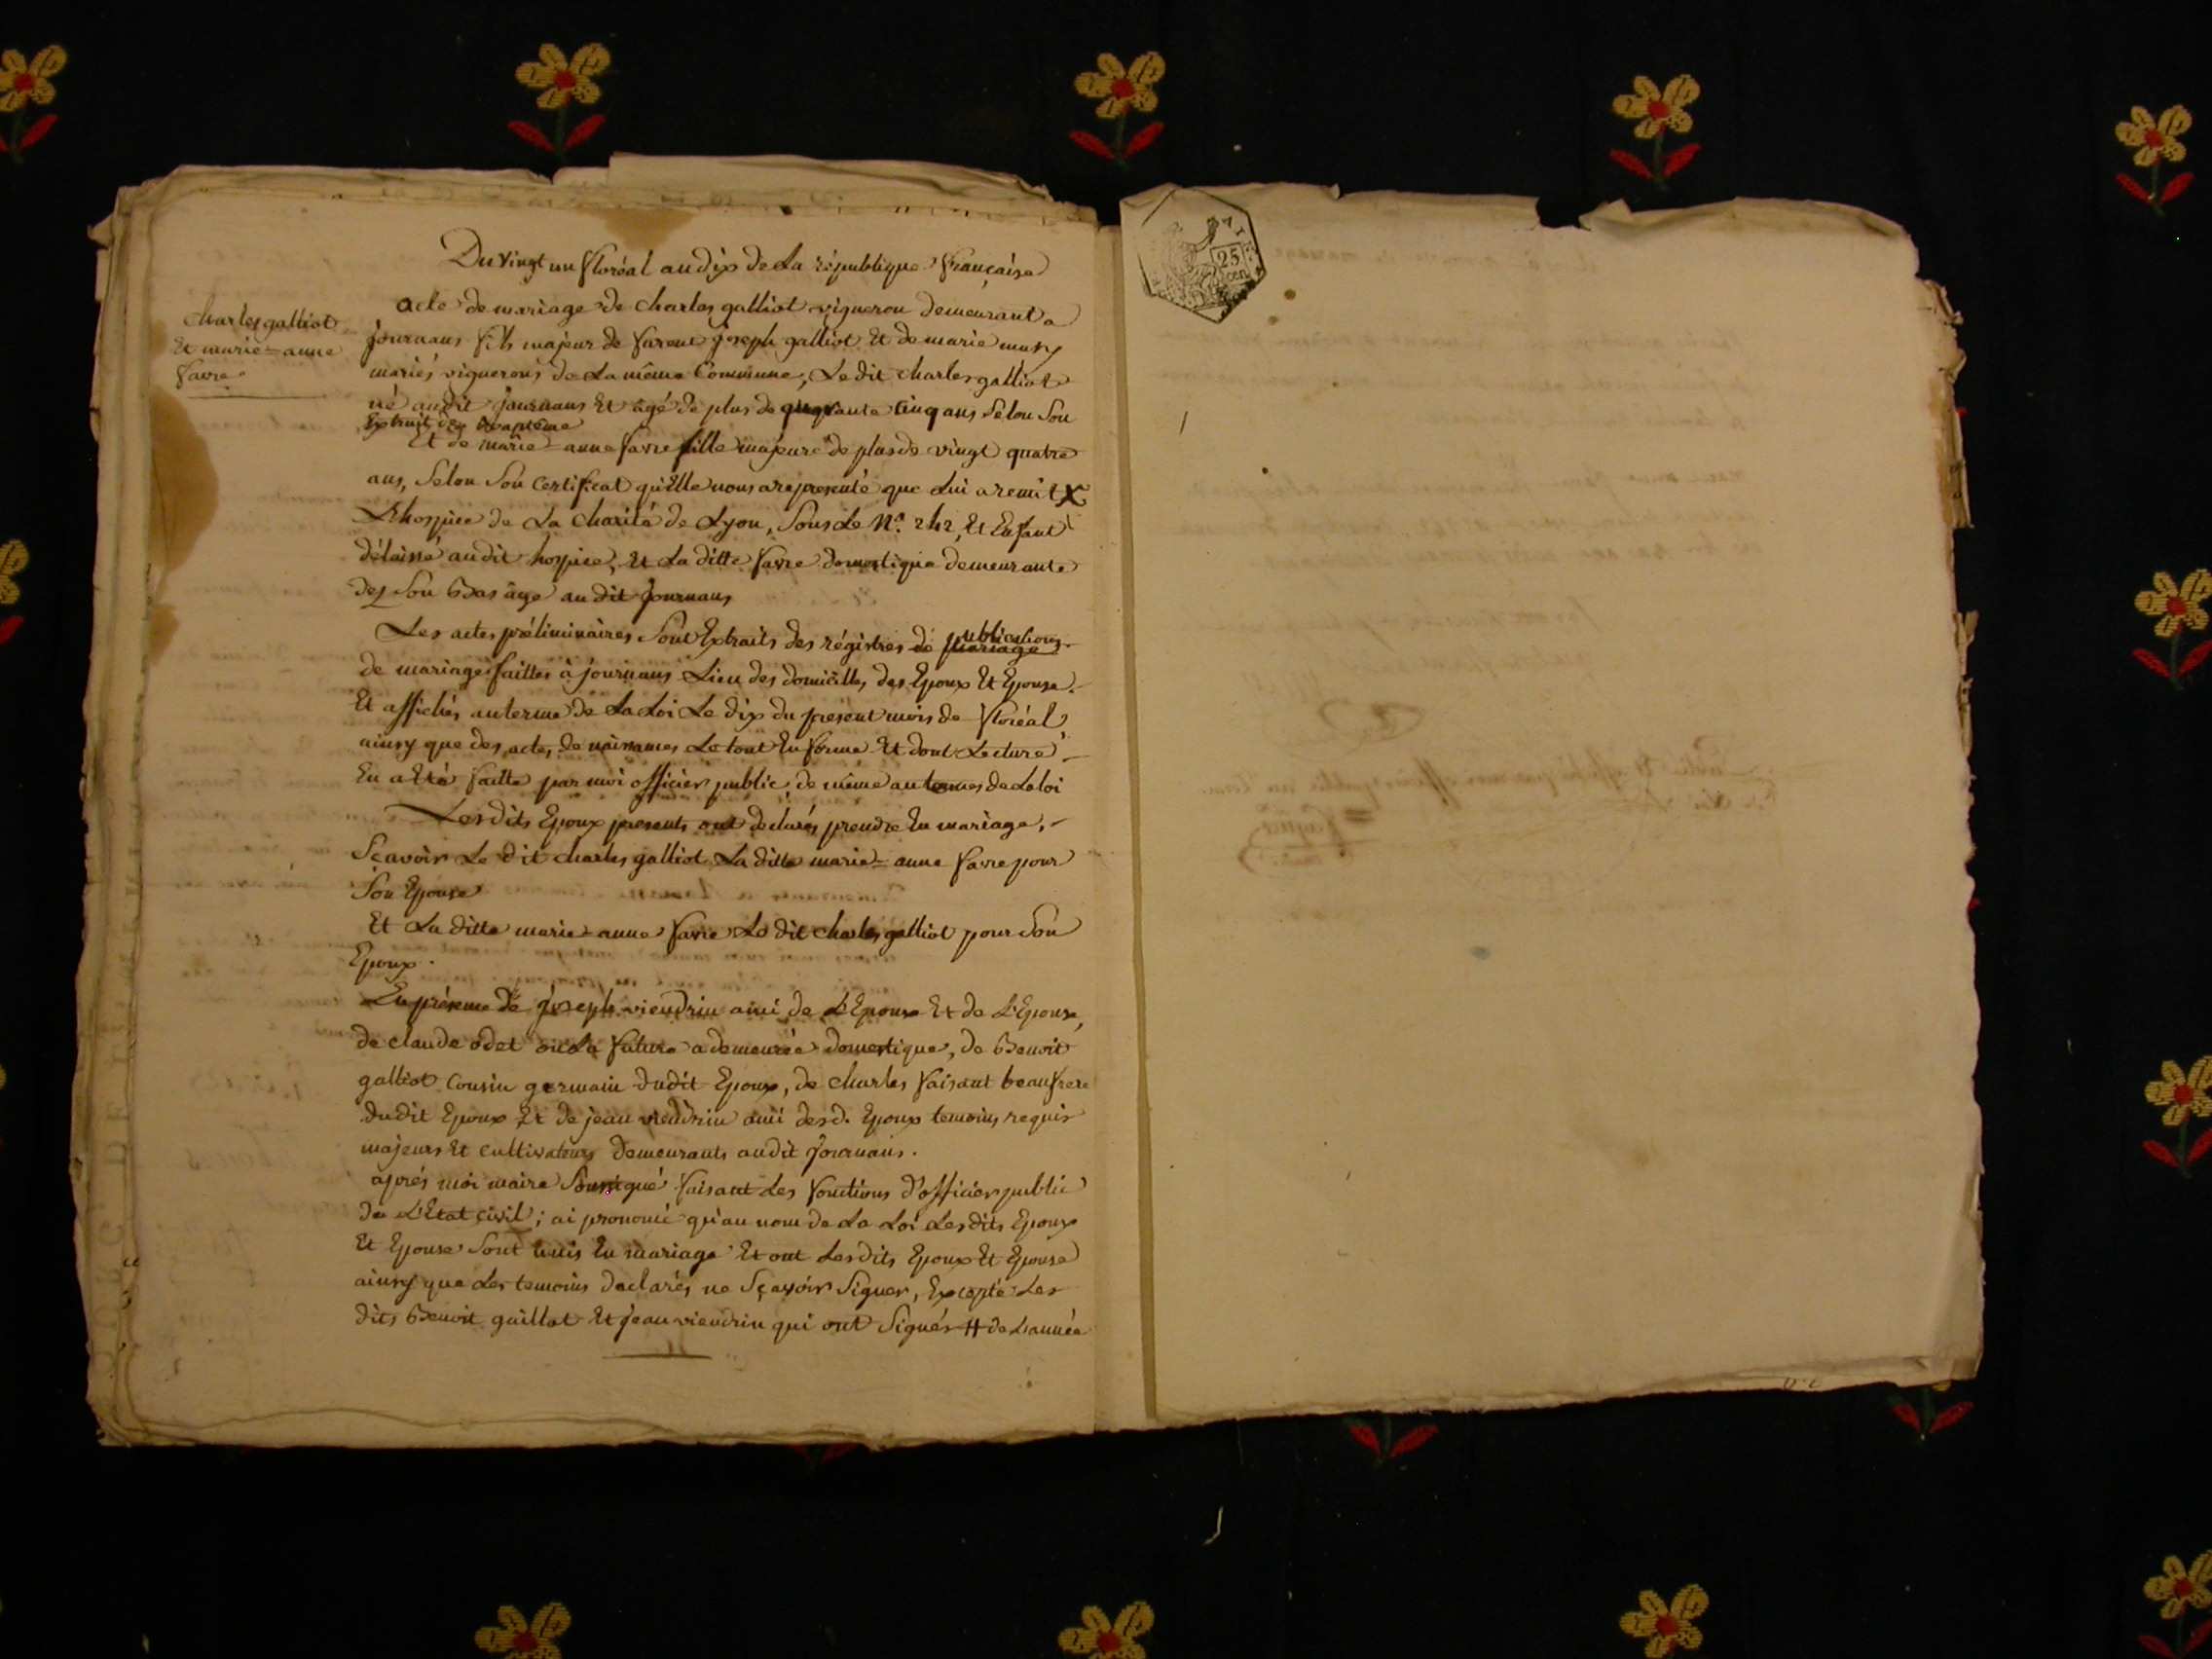 Du vingt un floréal an dix de La république française
charles galliot
Et marie-anne
favre
acte de mariage de charles galliot vigneron demeurant a
journans fils majeur de Laurent joseph galliot Et de marie
mariés vignerons de La même Commune, Le dit charles galliot
né audit journans Et âgé de plus de cinq ans Selon Son
Extrait de Baptême
Et de marie-anne favre fille majeure de plus de vingt quatre
ans, Selon Son Certificat qu'Elle nous a representé que Lui a remit X
L'hospice de La charité de Lyon, Sous Le N°. 242, Et Enfant
délaissé audit hospice, Et La ditte favre domestique demeurante
dez Son Bas âge au dit Journans
Les actes préliminaires Sont Extraits des régistres de mariage publications
de mariages faittes à journans Lieu des domicilles, des Epoux Et Epouse.
Et affichés au terme de La Loi Le dix du present mois de floréal,
ainsy que des actes de naissances Le tout En forme Et dont Lecture
En a Eté faitte par moi officier public, de même au termes de La loi
Les dits Epoux presents ont declarés prendre En mariage,
Sçavoir Le dit charles galliot La ditte marie-anne favre pour
Son Epouse
Et La ditte marie-anne favre Le dit charles galliot pour Son
Epoux.
En présence de Joseph viendrin ami de L'Epoux Et de L'Epouse,
de claude odet où La future a demeurée domestique, de Benoit
galliot Cousin germain dudit Epoux, de charles faisant beaufrere
dudit Epoux Et de jean viendrin ami desd. Epoux temoins requis
majeurs Et cultivateurs demeurants audit Journans.
après moi maire Soussigné faisant Les fonctions d'officier public
de L'Etat civil; ai prononcé qu'au nom de La Loi Les dits Epoux
Et Epouse Sont unis En mariage Et ont Les dits Epoux Et Epouse
ainsy que Les temoins declarés ne Sçavoir Signer, Excepté Les
dits Benoit gaillot Et jean viendrin qui ont Signés # de L'année
25
cen